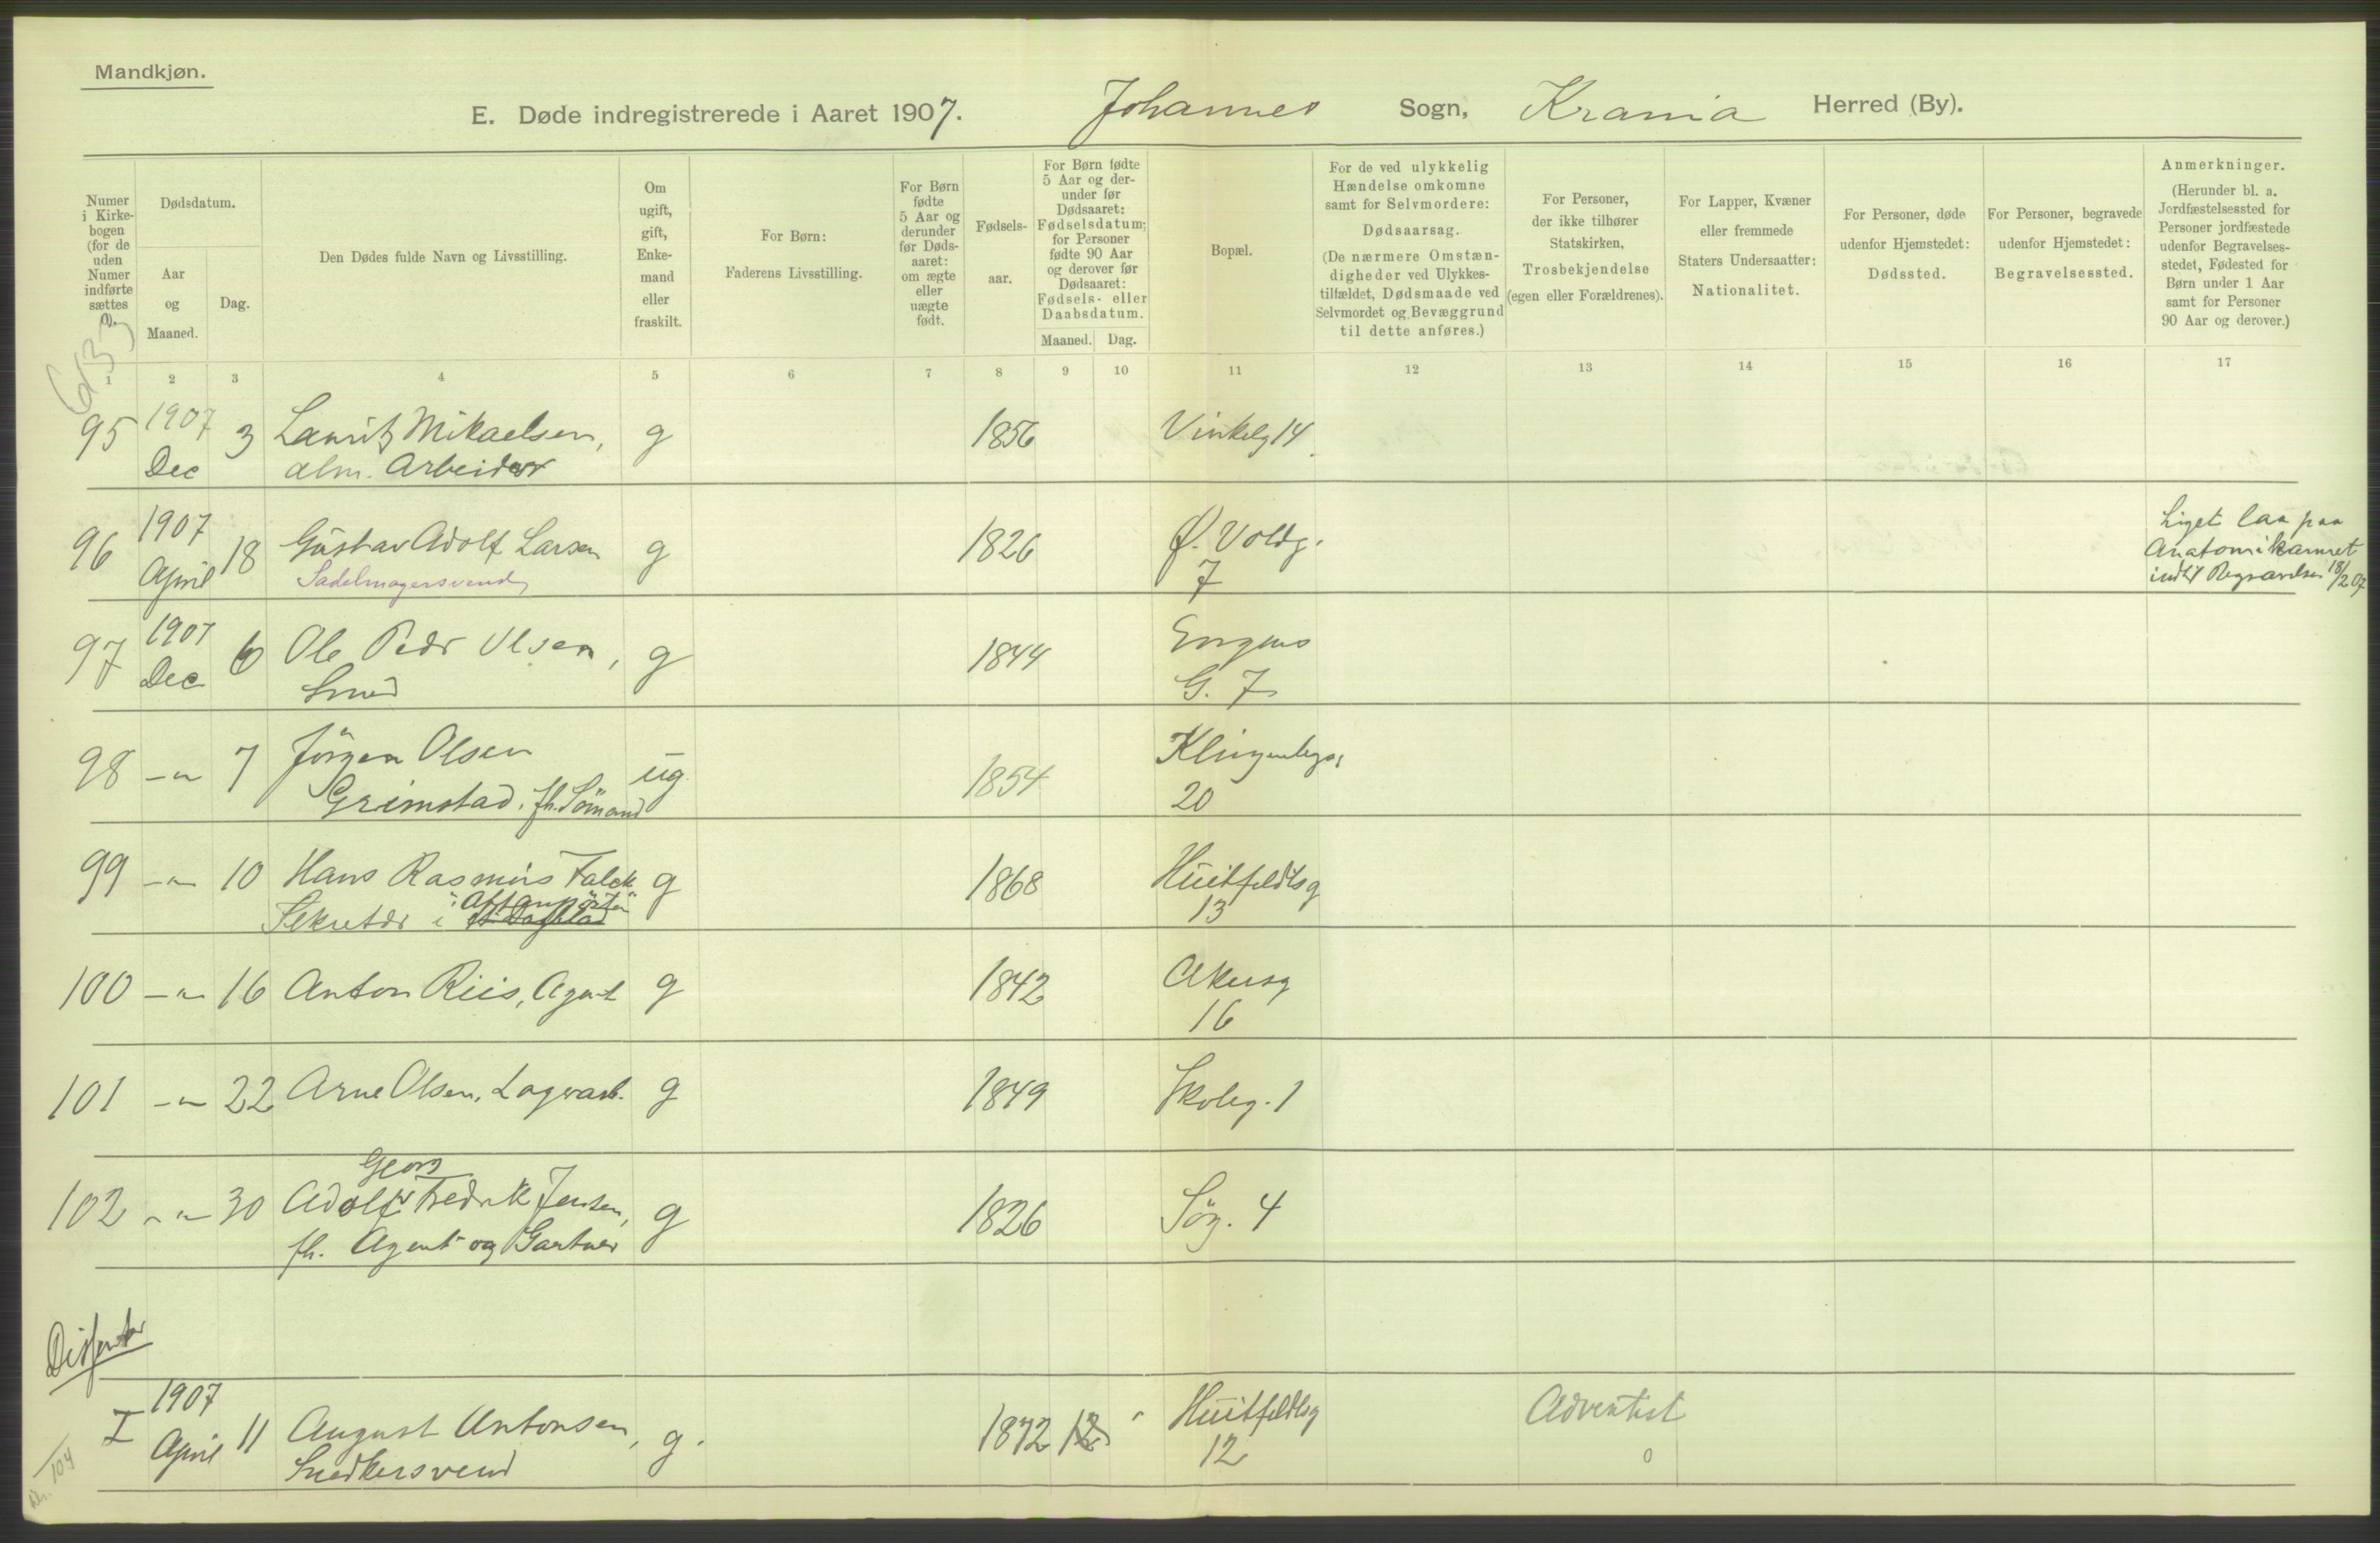 Mandkjøn.
E. Døde indregistrerede i Aaret 1907. Johannes Sogn, Krania Herred (By).
Numer i Kirkebogen (for de uden Numer indførte sættes
Dødsdatum.
Aar og Maaned.
Dag.
Den Dødes fulde Navn og Livsstilling.
Om ugift, gift, Enkemand eller fraskilt.
For Børn:
Faderens Livsstilling.
For Børn fødte 5 Aar og derunder før Dødsaaret: om ægte eller uægte født.
Fødselsaar.
For Børn fødte 5 Aar og derunder før Dødsaaret: Fødselsdatum; for Personer fødte 90 Aar og derover før Dødsaaret: Fødsels- eller Daabsdatum.
Maaned. Dag.
Bopæl.
For de ved ulykkelig Hændelse omkomne samt for Selvmordere:
Dødsaarsag.
(De nærmere Omstændigheder ved Ulykkestilfældet, Dødsmaade ved Selvmordet og Bevæggrund til dette anføres.)
For Personer, der ikke tilhører Statskirken,
Trosbekjendelse
(egen eller Forældrenes).
For Lapper, Kvæner eller fremmede Staters Undersaatter:
Nationalitet.
For Personer, døde udenfor Hjemstedet:
Dødssted.
For Personer, begravede udenfor Hjemstedet:
Begravelsessted.
Anmerkninger.
(Herunder bl. a. Jordfæstelsessted for Personer jordfæstede udenfor Begravelsesstedet, Fødested for Børn under 1 Aar samt for Personer 90 Aar og derover.)
1 2 3 4 5 6 7 8 9 10 11 12 13 14 15 16 17
95 1907 Dec 3 Lauritz Mikaelsen, g 1856 Vinkelg 14
alm. Arbeider
96 1907 April 18 Gustav Adolf Larsen g 1826 Ø. Voldg. 7
Sadelmagersvend
Liget laa paa
Anatomikamret
indtil Begravelsen 18/2 07
97 1907 Dec 6 Ole Peder Olsen, g 1844 Engens G. 7
Smed
98 -"- 7 Jörgen Olsen ug. 1854 Klingenbgs. 20
Grimstad, fh. Sömand
99 -"- 10 Hans Rasmus Falck g 1868 Huitfeldtsg 13
Sekretær i "Aftenposten"
100 -"- 16 Anton Riis, Agent g 1842 Akersg 16
101 -"- 22 Arne Olsen, Lagerarb. g 1849 Skoleg. 1
102 -"- 30 Adolf Georg Fredrik Jensen, g 1826 Sög. 4
fh. Agent og Gartner
Dissenter
I 1907 April 11 August Antonsen, g. 1872 12 Huitfeldtsg 12 Adventist
Snedkersvend
104